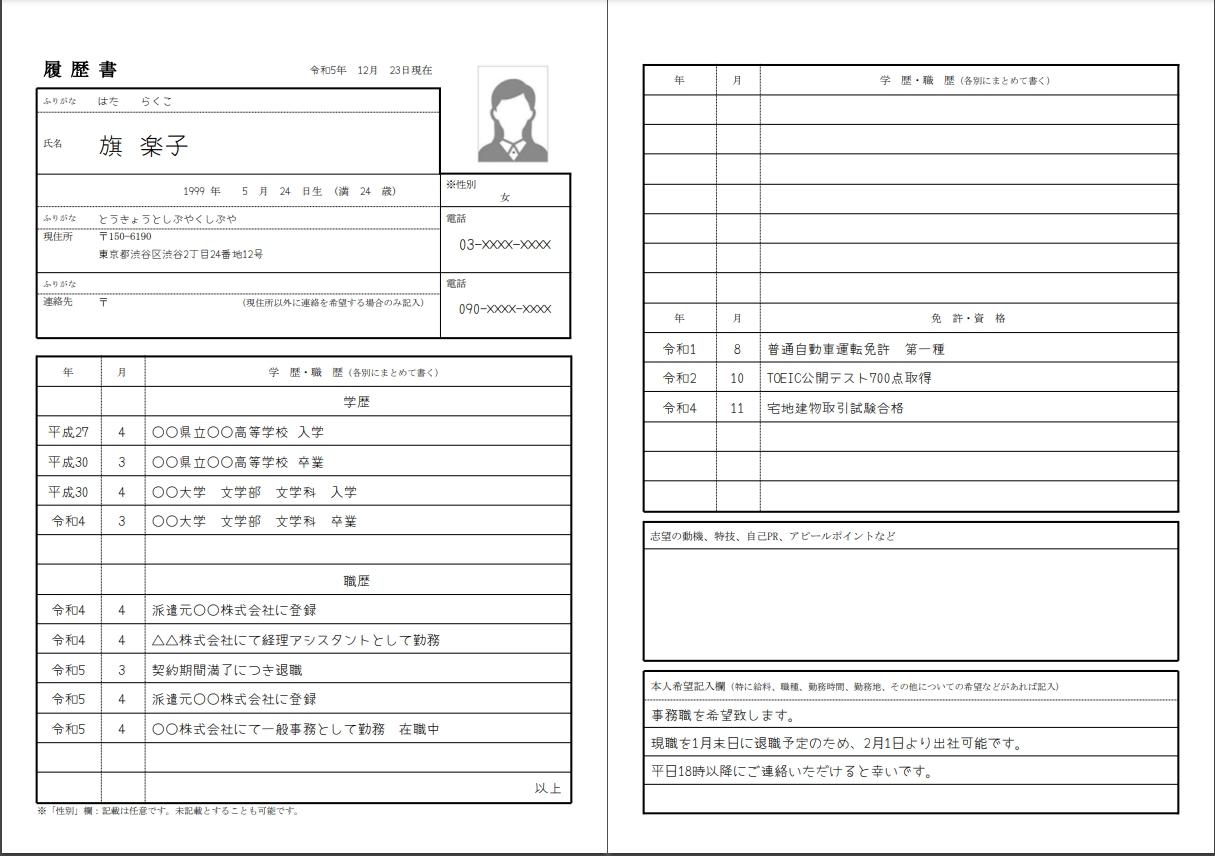 履歴書
令和5年 12月 23日現在
ふりがな はた らくこ
氏名 旗 楽子
1999 年 5 月 24 日生 (満 24 歳)
※性別
女
ふりがな とうきょうとしぶやくしぶや
現住所 〒150-6190
東京都渋谷区渋谷2丁目24番地12号
電話
03-XXXX-XXXX
ふりがな
連絡先 〒 (現住所以外に連絡を希望する場合のみ記入)
電話
090-XXXX-XXXX
年 月 学 歴・職 歴(各別にまとめて書く)
学歴
平成27 4 〇〇県立〇〇高等学校 入学
平成30 3 〇〇県立〇〇高等学校 卒業
平成30 4 〇〇大学 文学部 文学科 入学
令和4 3 〇〇大学 文学部 文学科 卒業
職歴
令和4 4 派遣元〇〇株式会社に登録
令和4 4 △△株式会社にて経理アシスタントとして勤務
令和5 3 契約期間満了につき退職
令和5 4 派遣元〇〇株式会社に登録
令和5 4 〇〇株式会社にて一般事務として勤務 在職中
以上
※「性別」欄：記載は任意です。未記載とすることも可能です。
年 月 学 歴・職 歴(各別にまとめて書く)
年 月 免 許・資 格
令和1 8 普通自動車運転免許 第一種
令和2 10 TOEIC公開テスト700点取得
令和4 11 宅地建物取引試験合格
志望の動機、特技、自己PR、アピールポイントなど
本人希望記入欄(特に給料、職種、勤務時間、勤務地、その他についての希望などがあれば記入)
事務職を希望致します。
現職を1月末日に退職予定のため、2月1日より出社可能です。
平日18時以降にご連絡いただけると幸いです。